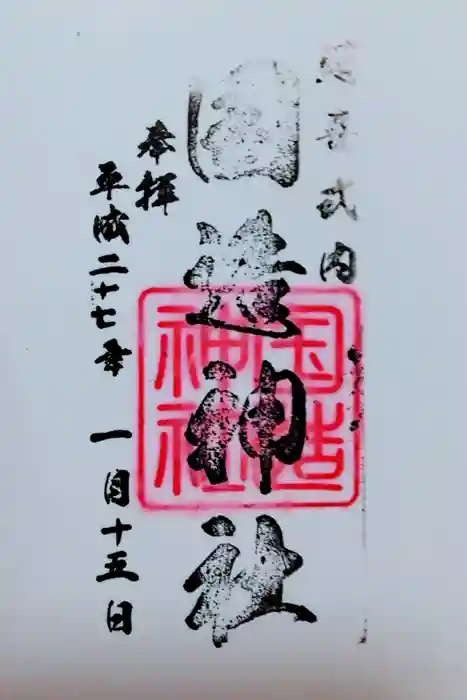 延喜式内
國造神社
奉拝
平成二十七年 一月十五日
国造
神社